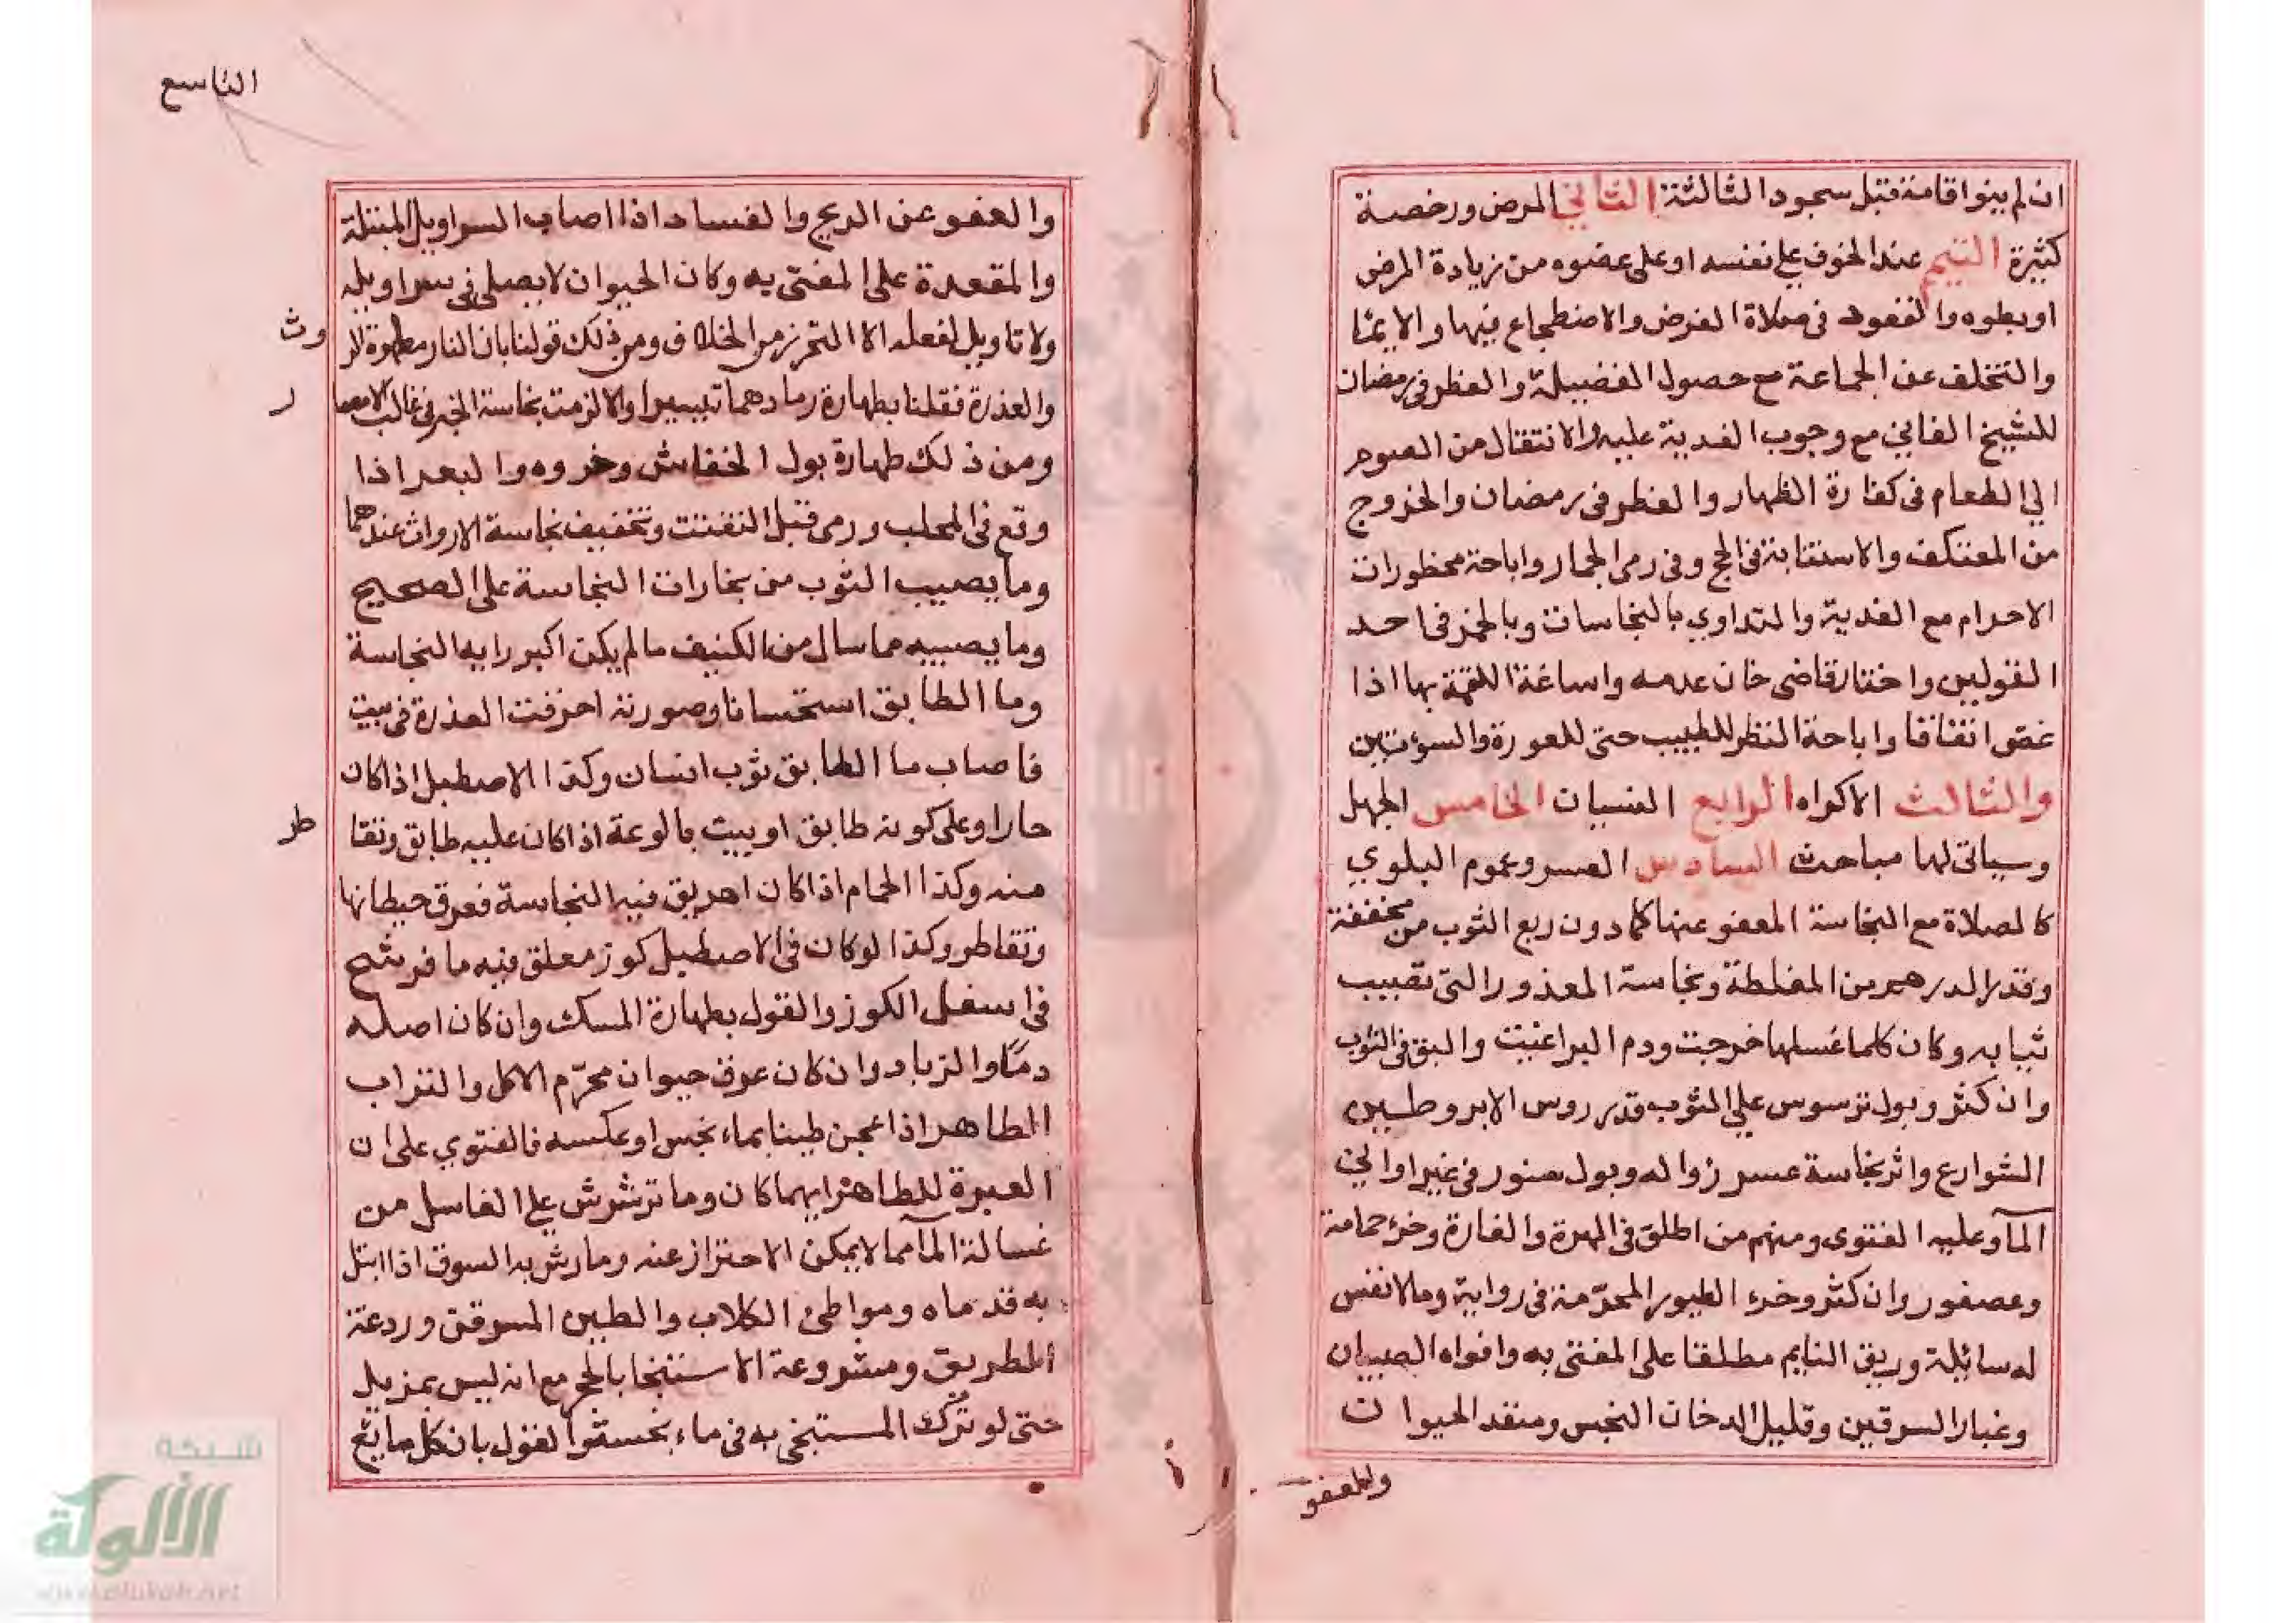 ان لم ينوا قامة قبل سجود الثالثة الثاني المرض ورخصة
كثيرة التيمم عند الخوف علي نفسه او على عضوه من زيادة المرض
او بطوه والقعود في صلاة الفرض والاضطجاع فيها والايما
والتخلف عن الجماعة مع حصول الفضيلة والفطر في رمضان
للشيخ الفاني مع وجوب الفدية عليه والانتقال من الصوم
الي الطعام في كفارة الظهار والفطر في رمضان والخروج
من المعتكف والاستنابة في الحج وفي رمي الجمار واباحة محظورات
الاحرام مع الفدية والتداوي بالنجاسات وبالخمر في احد
القولين واختار قاضي خان عدمه واساغة اللقمة بها اذا
غص اتفاقا واباحة النظر للطبيب حتى للعورة والسوءتين
والثالث الاكراه الرابع النسيان الخامس الجهل
وسياتي لها مباحث السادس العسر وعموم البلوي
كالصلاة مع النجاسة المعفو عنها كما دون ربع الثوب من مخففة
وقدر الدرهم من المغلظة ونجاسة المعذور التي تصيب
ثيابه وكان كلما غسلها خرجت ودم البراغيث والبق في الثوب
وان كثر وبول ترسوس علي الثوب قدر روس الابر وطين
الشوارع واثر نجاسة عسر زواله وبول سنور في غير اواني
المآ وعليه الفتوى ومنهم من اطلق في الهرة والفارة وخرء حمامة
وعصفور وان كثر وخرء الطيور المحرّمة في رواية وما لا نفس
له سائلة وريق النايم مطلقا على المفتى به وافواه الصبيان
وغبار السرقين وقليل الدخان النجس ومنفذ الحيوان
والعفو
التاسع
والعفو عن الريح والفساد اذا اصاب السراويل المبتلة
والمقعدة على المفتى به وكان الحيوان لا يصلي في سراويله
ولا تاويل لفعله الا التحرز من الخلاف ومن ذلك قولنا بان النار مطهرة للر
وث
والعذرة فقلنا بطهارة رمادهما تيسيرا والا لزمت نجاسة الخبز في غالب الامصا
ر
ومن ذلك طهارة بول الخفاش وخروه والبعر اذا
وقع في المحلب ورمى قبل التفتت وتخفيف نجاسة الارواث عندهما
وما يصيب الثوب من بخارات النجاسة على الصحيح
وما يصيبه مما سال من الكنيف ما لم يكن اكبر رايه النجاسة
وما الطابق استحسانا وصورته احرقت العذرة في بيت
فاصاب ما الطابق ثوب انسان وكذا الاصطبل اذا كان
حارا وعلى كونه طابق او بيت بالوعة اذا كان عليه طابق وتقا
طر
منه وكذا الحمام اذا كان اهريق فيه النجاسة فعرق حيطانها
وتقاطر وكذا لو كان في الاصطبل كوز معلق فيه ما فرشح
في اسفل الكوز والقول بطهارة المسك وان كان اصله
دمًا والزباد وان كان عرق حيوان محرّم الاكل والتراب
الطاهر اذا عجن طينا بماء نجس او عكسه فالفتوي على ان
العبرة للطاهر ايهما كان وما ترشرش علي الغاسل من
غسالة المآ مما لا يمكن الاحتراز عنه وما رش به السوق اذا ابتل
به قدماه ومواطئ الكلاب والطين المسرقن وردغة
الطريق ومشروعة الاستنجا بالحجر مع انه ليس بمزيل
حتى لو ترك المستنجي به في ماء نجسه والقول بان كل مايع
شبكة
الألوكة
www.alukah.net